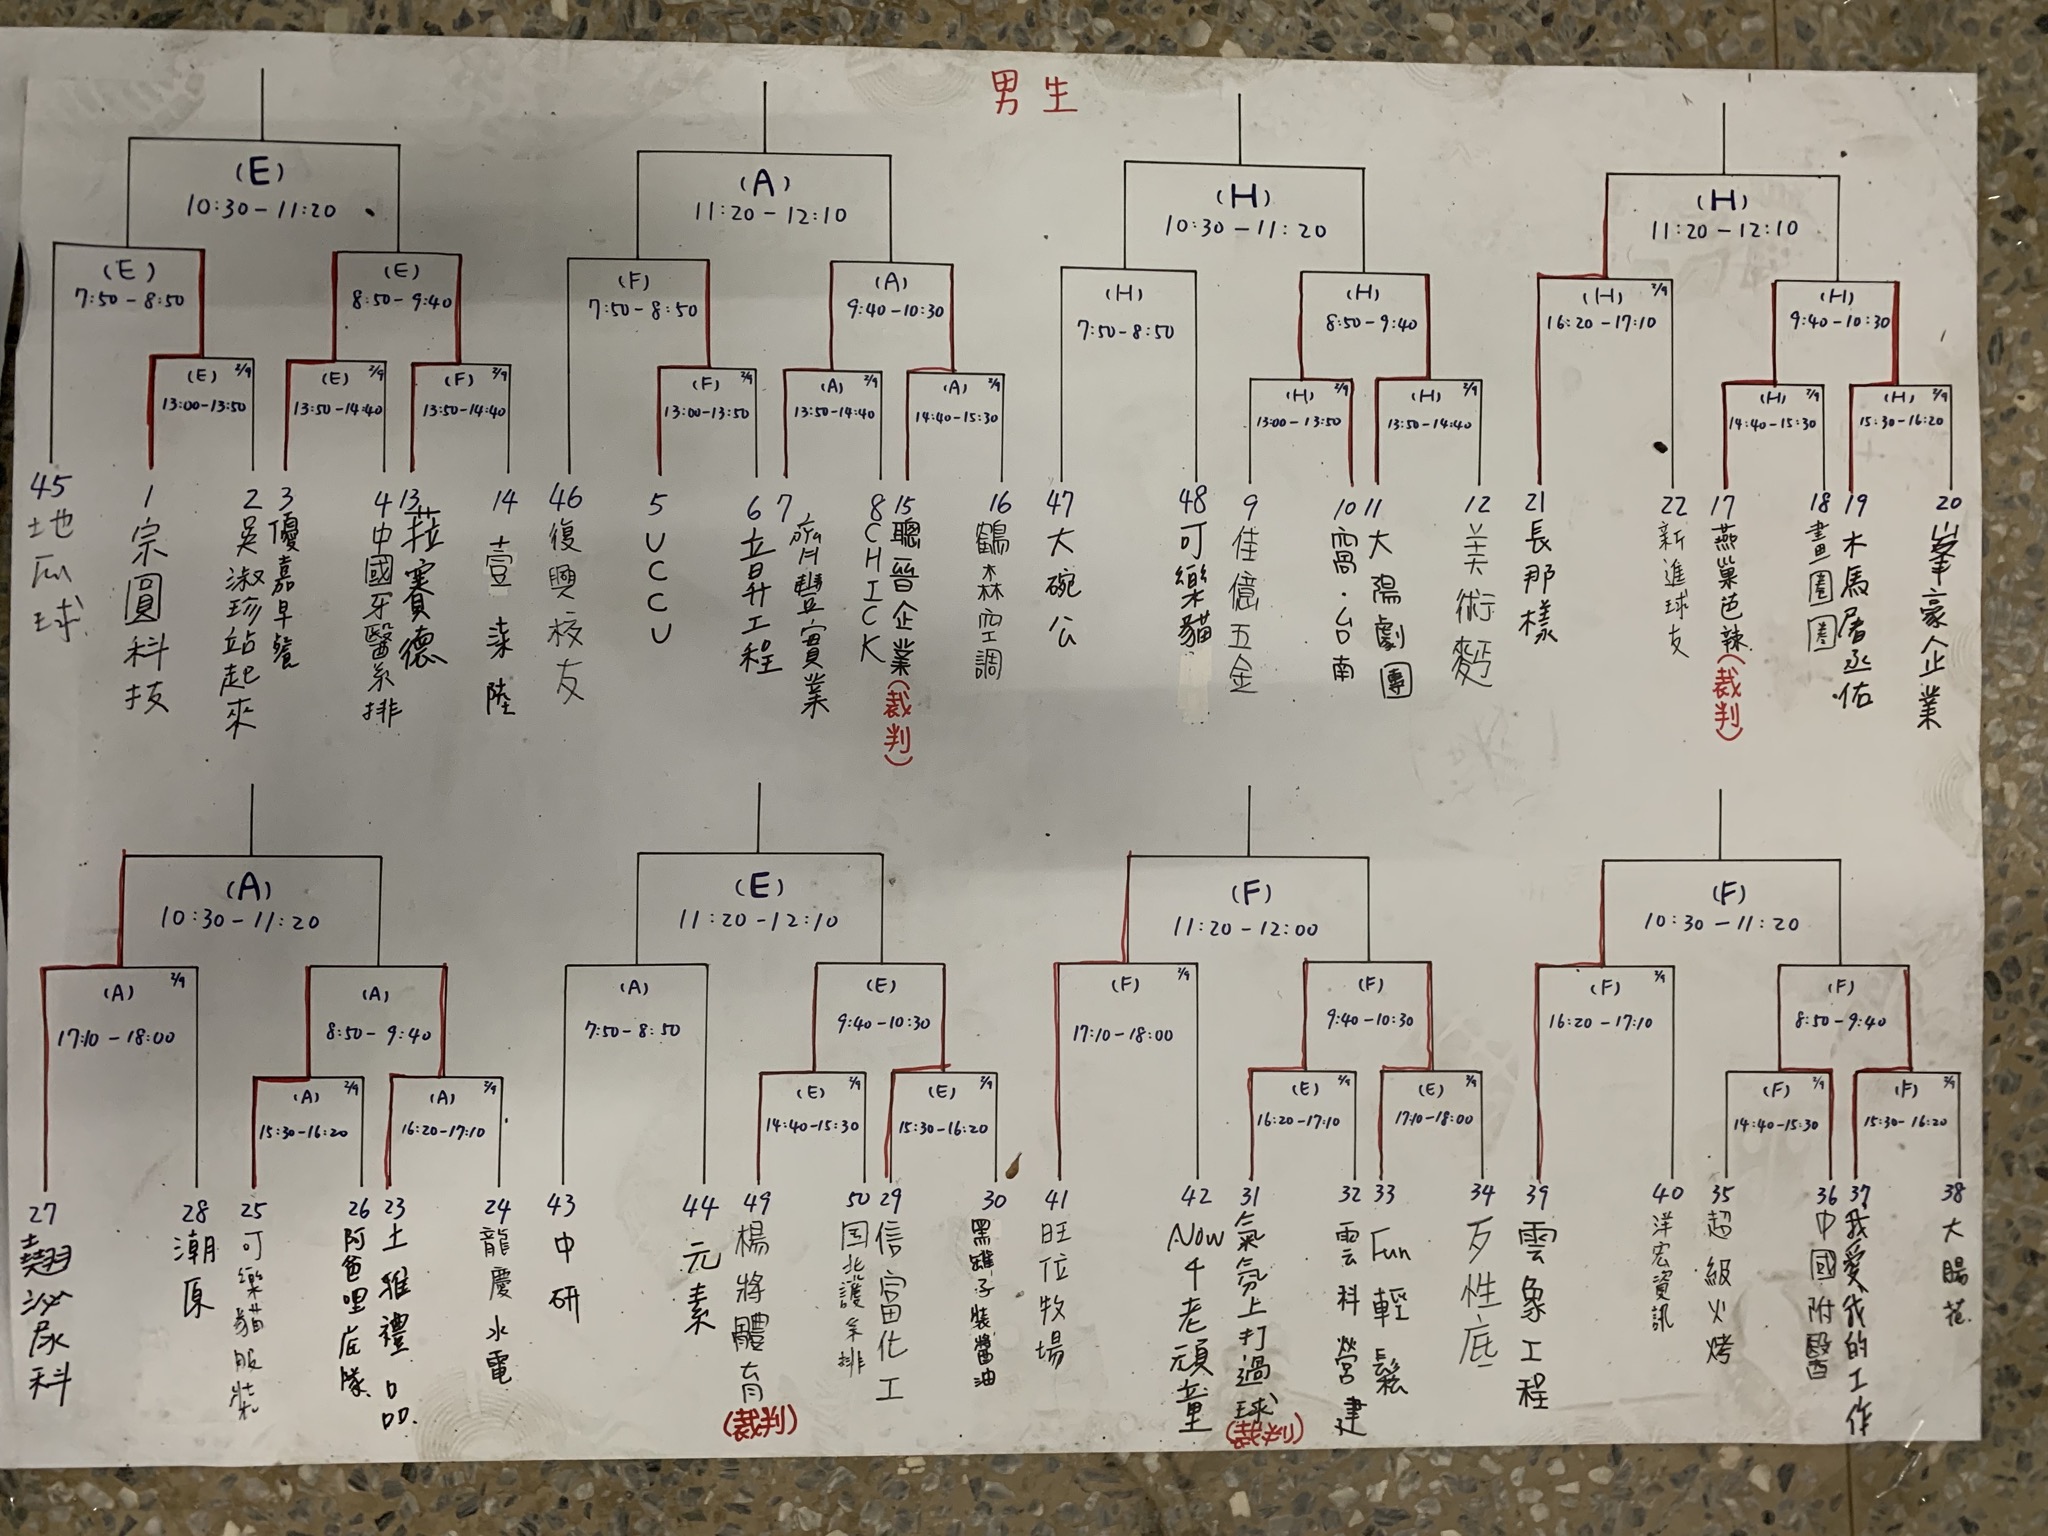 男生
(E)
10:30-11:20
(A)
11:20-12:10
(H)
10:30-11:20
(H)
11:20-12:10
(E)
7:50-8:50
(E)
8:50-9:40
(F)
7:50-8:50
(A)
9:40-10:30
(H)
7:50-8:50
(H)
8:50-9:40
(H) 2/9
16:20-17:10
(H)
9:40-10:30
(E) 2/9
13:00-13:50
(E) 2/9
13:50-14:40
(F) 2/9
13:50-14:40
(F) 2/9
13:00-13:50
(A) 2/9
13:50-14:40
(A) 2/9
14:40-15:30
(H) 2/9
13:00-13:50
(H) 2/9
13:50-14:40
(H) 2/9
14:40-15:30
(H) 2/9
15:30-16:20
45 地瓜球
1 宗圓科技
2 吳淑珍站起來
3 優嘉早餐
4 中國牙醫系排
13 菈賽德
14 壹柒陸
46 復興校友
5 UCCU
6 立昇工程
7 齊豐實業
8 CHICK
15 聰晉企業(裁判)
16 鶴森空調
47 大碗公
48 可樂貓
9 佳億五金
10 窩·台南
11 大陽劇團
12 美術麪
21 長那樣
22 新進球友
17 燕巢芭辣(裁判)
18 畫圈圈
19 木馬屠丞佑
20 峯豪企業
(A)
10:30-11:20
(E)
11:20-12:10
(F)
11:20-12:00
(F)
10:30-11:20
(A) 2/9
17:10-18:00
(A)
8:50-9:40
(A)
7:50-8:50
(E)
9:40-10:30
(F) 2/9
17:10-18:00
(F)
9:40-10:30
(F) 2/9
16:20-17:10
(F)
8:50-9:40
(A) 2/9
15:30-16:20
(A) 2/9
16:20-17:10
(E) 2/9
14:40-15:30
(E) 2/9
15:30-16:20
(E) 2/9
16:20-17:10
(E) 2/9
17:10-18:00
(F) 2/9
14:40-15:30
(F) 2/9
15:30-16:20
27 翹泌尿科
28 潮原
25 可樂貓服裝
26 阿爸哩底隊
23 土雅禮品
24 龍慶水電
43 中研
44 元素
49 楊將體育(裁判)
50 国北護系排
29 信富化工
30 黑罐子裝醬油
41 旺位牧場
42 Now千老頑童
31 氣氛上打過球(裁判)
32 雲科營建
33 Fun輕鬆
34 歹性底
39 雲象工程
40 洋宏資訊
35 超級火烤
36 中國附醫
37 我愛我的工作
38 大腸花